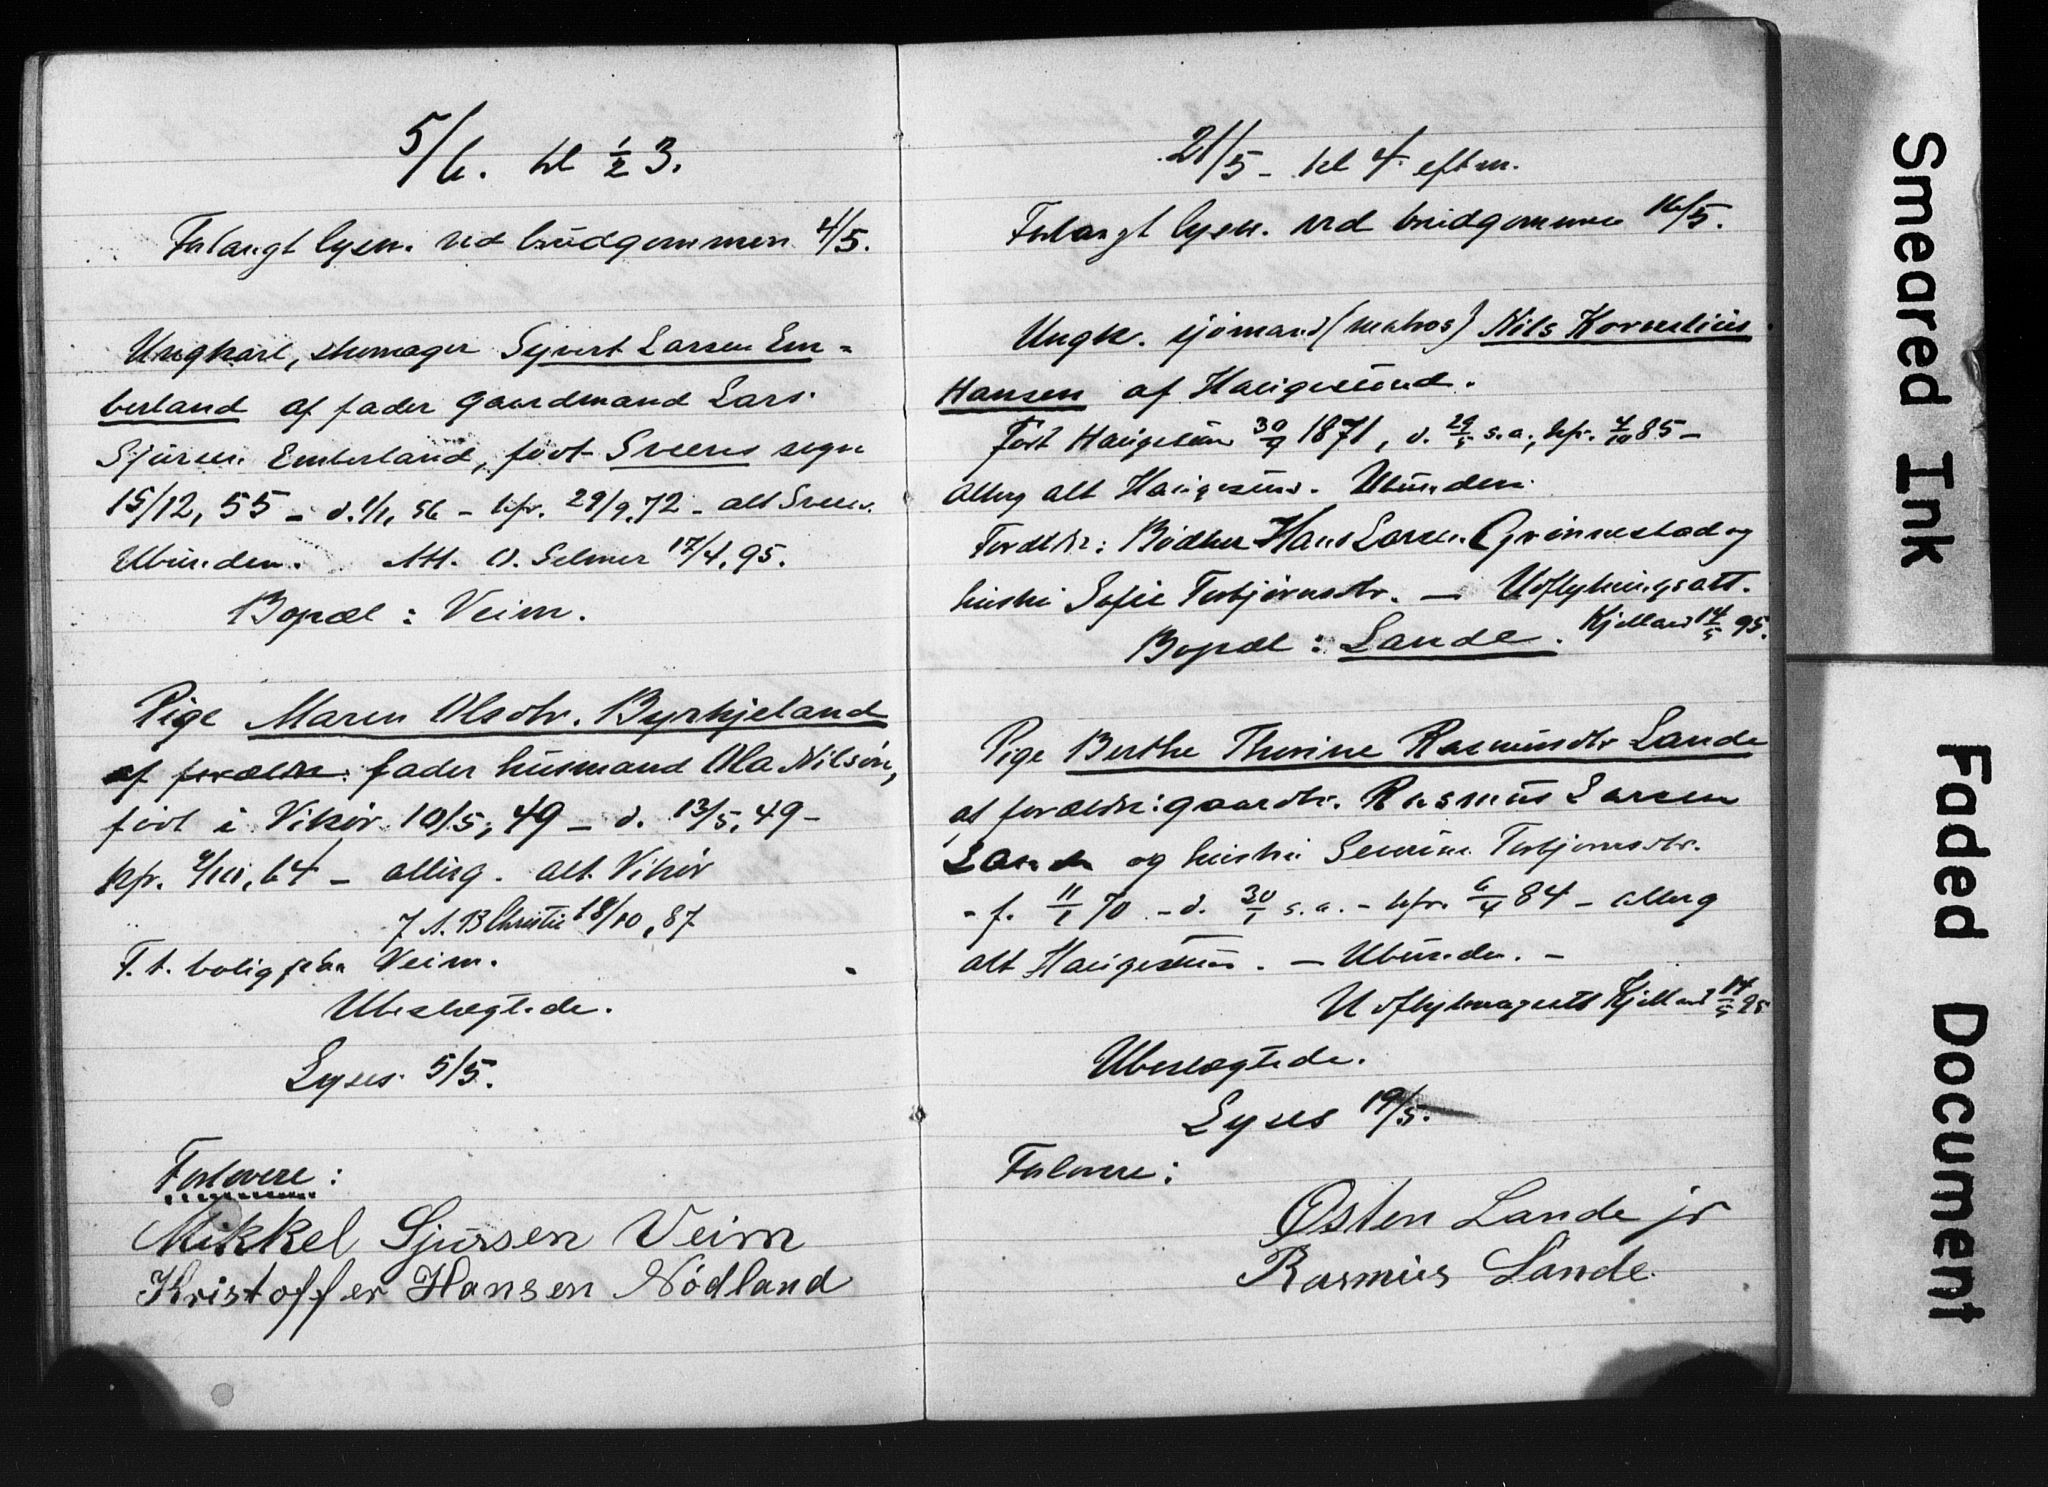 5/6. kl ½ 3.
Forlangt lysn. ved brudgommen 4/5.
Ungkarl, skomager Syvert Larsen Em=
berland af fader gaardmand Lars
Sjursen Emberland, født Sveens sogn
15/12, 55 – d. 1/1, 56 – kfr. 29/9, 72 – alt Sveen.
Ubunden. Att. O. Selmer 17/4, 95.
Bopæl : Veim.
Pige Maren Olsdtr. Byrkjeland
af forældre: fader husmand Ola Nilsen,
født i Vikør 10/5, 49 – d. 13/5, 49 –
kfr. 64 – allerg. alt Vikør
Christie 18/10, 87
F. t. bolig paa Veim.
Ubeslægtede.
Lyses 5/5.
Forlovere :
Mikkel Sjursen Veim
Kristoffer Hansen Nødland
21/5 – kl 4 eftm.
Forlangt lysn. ved brudgommen 16/5.
Ungk. sjømand (matros) Nils Kornelius
Hansen af Haugesund.
Født Haugesun 30/9 1871, d. s.a., kfr. 4/10 85 –
allerg alt Haugesund. Ubunden.
Foreldre: Bødker Hans Larsen Grønnestad og
hustru Sofie Torbjørnsdtr. — Udflytningsatt.
Bopæl : Lande. Kjelland 14/5 95.
Pige Berthe Thorine Rasmusdtr Lande
af forældre: gaardbr. Rasmus Larsen
Lande og hustru Severine Torbjørnsdtr.
- f. 11/1 70 – d. 30/1 s.a. – kfr. 6/4 84 – allerg
alt Haugesun. – Ubunden. –
Udflytningsatt Kjelland 14/5 95
Ubeslægtede.
Lyses 19/5.
Forlovere :
Østen Lande jr
Rasmus Lande.
Smeared Ink
Faded Document